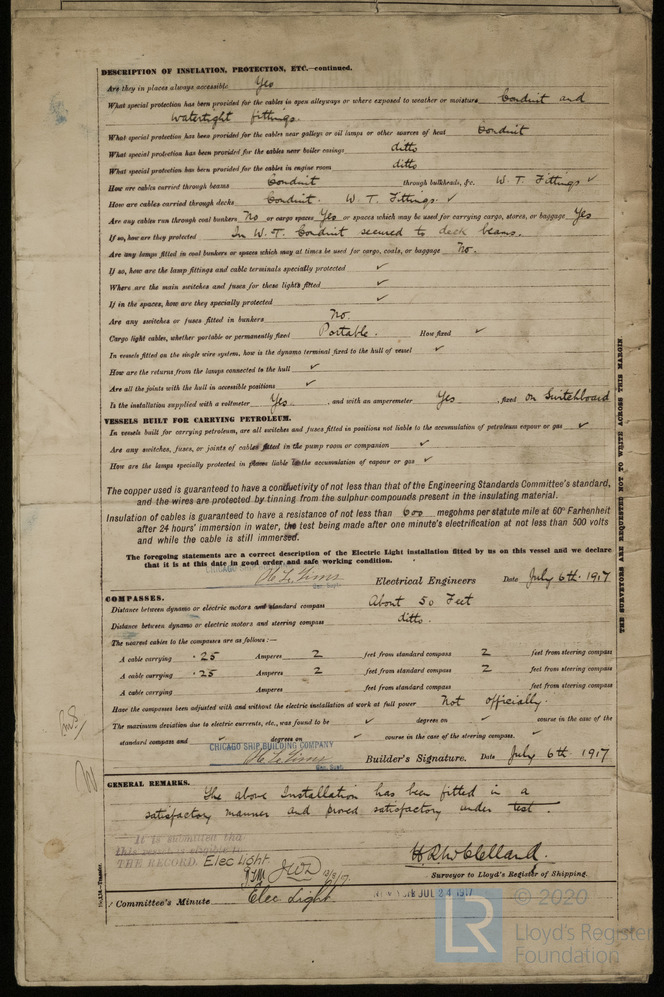 DESCRIPTION OF INSULATION, PROTECTION, ETC.—continued.
Are they in places always accessible Yes
What special protection has been provided for the cables in open alleyways or where exposed to weather or moisture Conduit and
watertight fittings.
What special protection has been provided for the cables near galleys or oil lamps or other sources of heat Conduit
What special protection has been provided for the cables near boiler casings ditto
What special protection has been provided for the cables in engine room ditto
How are cables carried through beams Conduit through bulkheads, &c. W. T. Fittings ✓
How are cables carried through decks Conduit. W. T. Fittings. ✓
Are any cables run through coal bunkers No or cargo spaces Yes or spaces which may be used for carrying cargo, stores, or baggage Yes
If so, how are they protected In W. T. Conduit secured to deck beams.
Are any lamps fitted in coal bunkers or spaces which may at times be used for cargo, coals, or baggage No.
If so, how are the lamp fittings and cable terminals specially protected ✓
Where are the main switches and fuses for these lights fitted ✓
If in the spaces, how are they specially protected ✓
Are any switches or fuses fitted in bunkers No.
Cargo light cables, whether portable or permanently fixed Portable. How fixed ✓
In vessels fitted on the single wire system, how is the dynamo terminal fixed to the hull of vessel ✓
How are the returns from the lamps connected to the hull ✓
Are all the joints with the hull in accessible positions ✓
Is the installation supplied with a voltmeter Yes. , and with an amperemeter Yes , fixed on Switchboard
VESSELS BUILT FOR CARRYING PETROLEUM.
In vessels built for carrying petroleum, are all switches and fuses fitted in positions not liable to the accumulation of petroleum vapour or gas ✓
Are any switches, fuses, or joints of cables fitted in the pump room or companion ✓
How are the lamps specially protected in places liable to the accumulation of vapour or gas ✓
The copper used is guaranteed to have a conductivity of not less than that of the Engineering Standards Committee's standard,
and the wires are protected by tinning from the sulphur compounds present in the insulating material.
Insulation of cables is guaranteed to have a resistance of not less than 600 megohms per statute mile at 60° Farhenheit
after 24 hours' immersion in water, the test being made after one minute's electrification at not less than 500 volts
and while the cable is still immersed.
The foregoing statements are a correct description of the Electric Light installation fitted by us on this vessel and we declare
that it is at this date in good order and safe working condition.
CHICAGO SHIP BUILDING COMPANY
Electrical Engineers Date July 6th. 1917
COMPASSES.
Distance between dynamo or electric motors and standard compass About 50 Feet
Distance between dynamo or electric motors and steering compass ditto.
The nearest cables to the compasses are as follows:—
A cable carrying .25 Amperes 2 feet from standard compass 2 feet from steering compass
A cable carrying .25 Amperes 2 feet from standard compass 2 feet from steering compass
A cable carrying Amperes feet from standard compass feet from steering compass
Have the compasses been adjusted with and without the electric installation at work at full power Not officially.
The maximum deviation due to electric currents, etc., was found to be ✓ degrees on ✓ course in the case of the
standard compass and ✓ degrees on ✓ course in the case of the steering compass. ✓
CHICAGO SHIP BUILDING COMPANY
Builder's Signature. Date July 6th. 1917
GENERAL REMARKS.
The above Installation has been fitted in a
satisfactory manner and proved satisfactory under test.
It is submitted tha
this vessel is eligible to
THE RECORD. Elec Light.
Surveyor to Lloyd's Register of Shipping.
Committee's Minute
JUL 24 1917
Elec. Light.
THE SURVEYORS ARE REQUESTED NOT TO WRITE ACROSS THIS MARGIN.
© 2020
LR
Lloyd's Register
Foundation